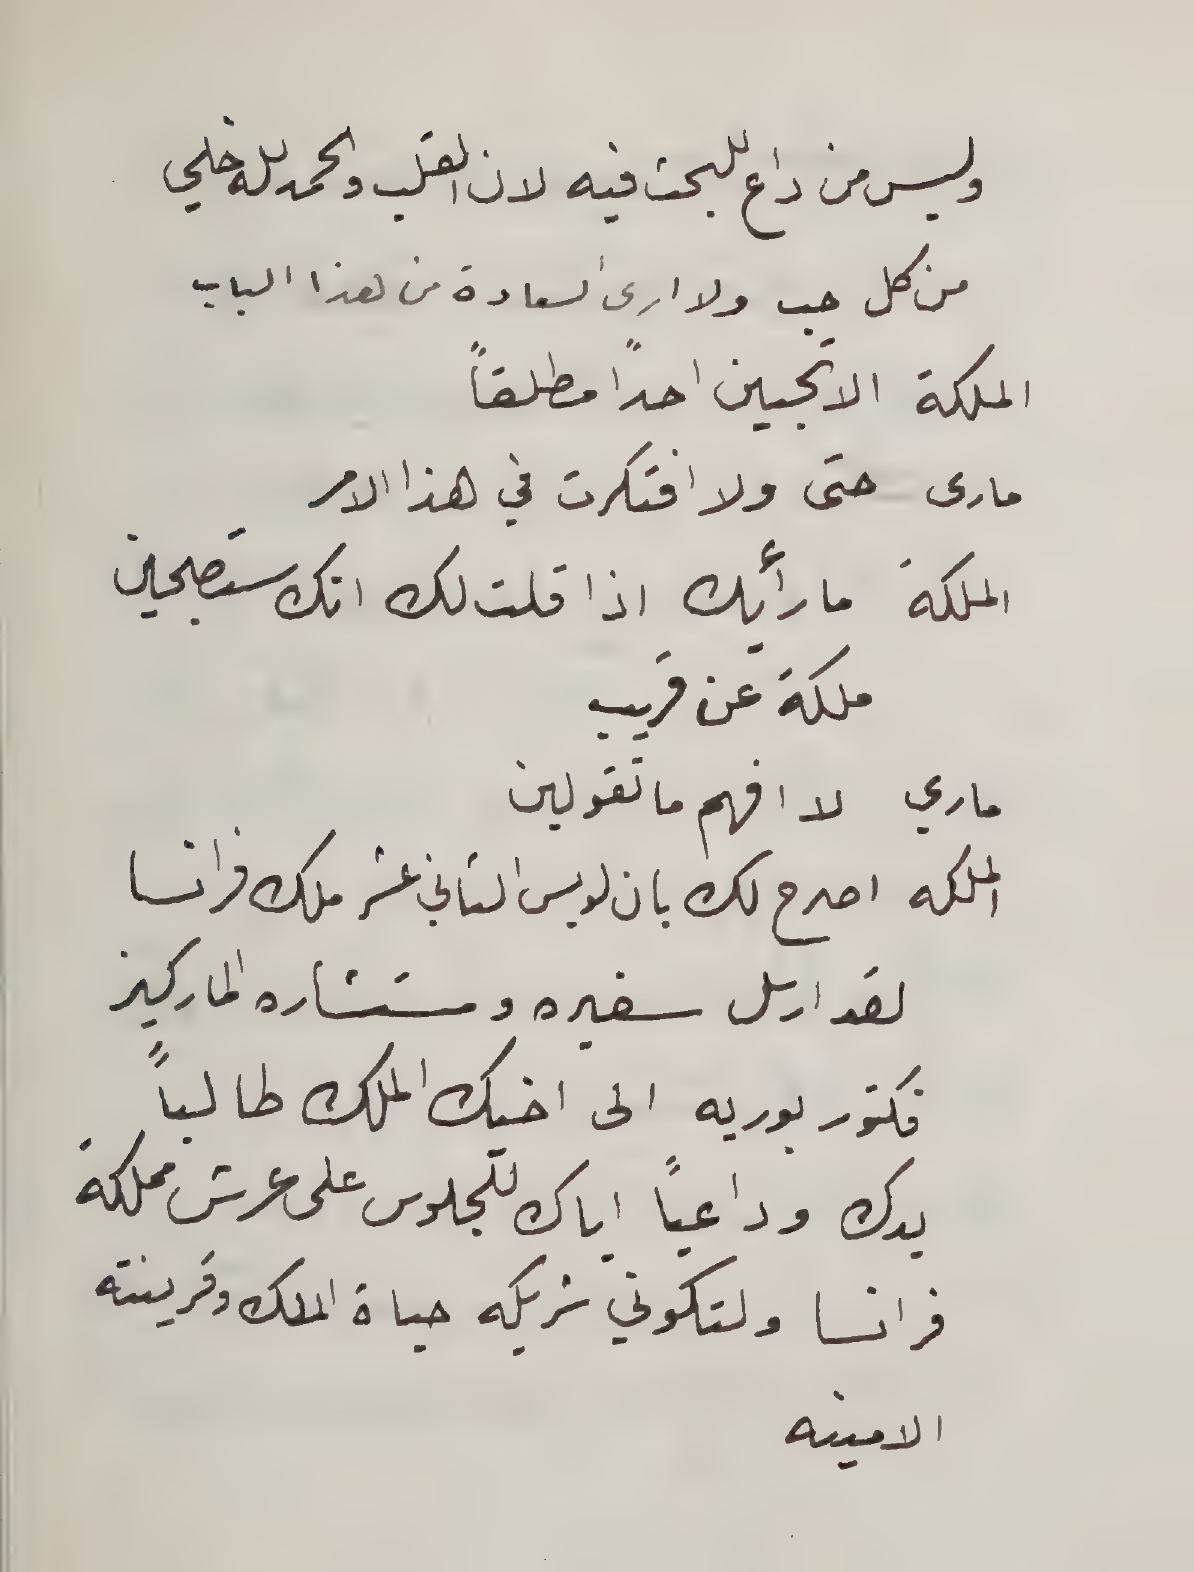 وليس من داع للبحث فيه لان القلب والحمد لله خلي
من كل حب ولا ارى السعادة من هذا الباب
الملكة الا تحبين احداً مطلقاً
مارى حتى ولا افتكرت في هذا الامر
الملكة ما رأيك اذا قلت لك انك ستصبحين
ملكة عن قريب
ماري لا افهم ما تقولين
الملكه اصرح لك بان لويس الثاني عشر ملك فرانسا
لقد ارسل سفيره ومستشاره الماركيز
فكتور بوريه الى اخيك الملك طالباً
يدك وداعياً اياك للجلوس على عرش مملكة
فرانسا ولتكوني شريكه حياة الملك وقرينته
الامينه